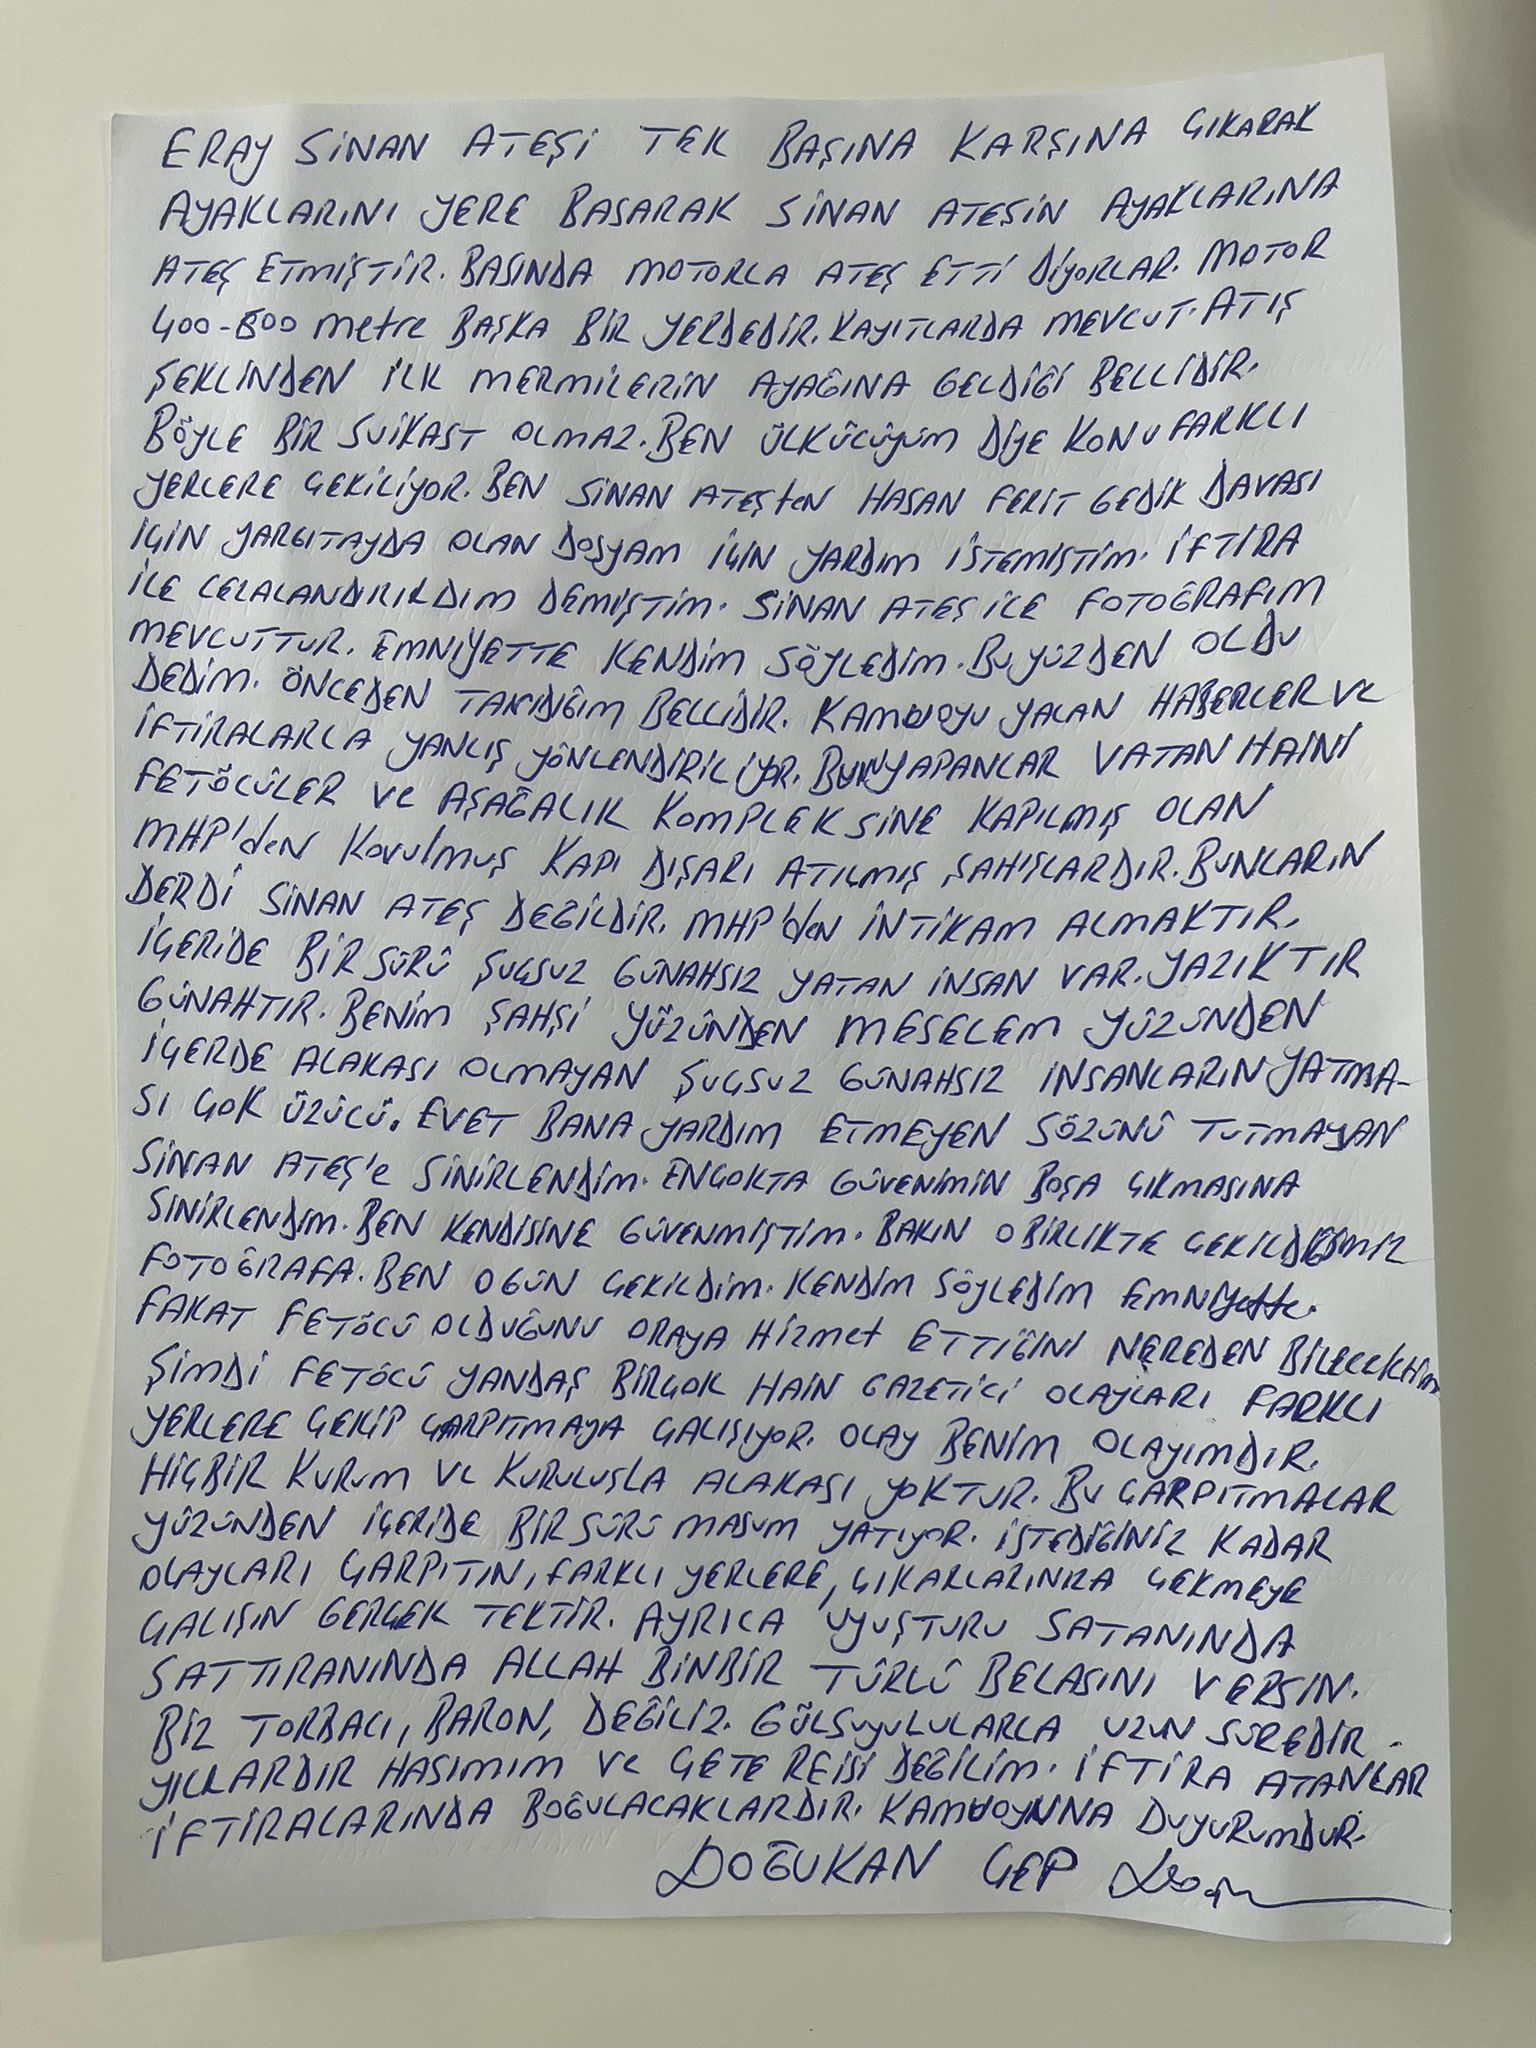 ERAY SİNAN ATEŞİ TEK BAŞINA KARŞINA ÇIKARAK
AYAKLARINI YERE BASARAK SİNAN ATEŞİN AYAKLARINA
ATEŞ ETMİŞTİR. BASINDA MOTORLA ATEŞ ETTİ DİYORLAR. MOTOR
400-800 metre BAŞKA BİR YERDEDİR. KAYITLARDA MEVCUT. ATIŞ
ŞEKLİNDEN İLK MERMİLERİN AYAĞINA GELDİĞİ BELLİDİR.
BÖYLE BİR SUİKAST OLMAZ. BEN ÜLKÜCÜYÜM DİYE KONU FARKLI
YERLERE ÇEKİLİYOR. BEN SİNAN ATEŞten HASAN FERİT GEDİK DAVASI
İÇİN YARGITAYDA OLAN DOSYAM İÇİN YARDIM İSTEMİŞTİM. İFTİRA
İLE CEZALANDIRILDIM DEMİŞTİM. SİNAN ATEŞ İLE FOTOĞRAFIM
MEVCUTTUR. EMNİYETTE KENDİM SÖYLEDİM. BU YÜZDEN OLDU
DEDİM. ÖNCEDEN TANIDIĞIM BELLİDİR. KAMUOYU YALAN HABERLER VE
İFTİRALARLA YANLIŞ YÖNLENDİRİLİYOR. BUNU YAPANLAR VATAN HAİNİ
FETÖCÜLER VE AŞAĞALIK KOMPLEKSİNE KAPILMIŞ OLAN
MHP'den Kovulmuş KAPI DIŞARI ATILMIŞ ŞAHIŞLARDIR. BUNLARIN
DERDİ SİNAN ATEŞ DEĞİLDİR. MHP'den İNTİKAM ALMAKTIR.
İÇERİDE BİR SÜRÜ SUÇSUZ GÜNAHSIZ YATAN İNSAN VAR. YAZIKTIR
GÜNAHTIR. BENİM ŞAHŞİ YÜZÜNDEN MESELEM YÜZÜNDEN
İÇERDE ALAKASI OLMAYAN SUÇSUZ GÜNAHSIZ İNSANLARIN YATMA-
SI ÇOK ÜZÜCÜ. EVET BANA YARDIM ETMEYEN SÖZÜNÜ TUTMAYAN
SİNAN ATEŞ'e SİNİRLENDİM. ENÇOKTA GÜVENİMİN BOŞA ÇIKMASINA
SİNİRLENDİM. BEN KENDİSİNE GÜVENMİŞTİM. BAKIN O BİRLİKTE ÇEKİLDİĞİMİZ
FOTOĞRAFA. BEN O GÜN ÇEKİLDİM. KENDİM SÖYLEDİM EMNİyette.
FAKAT FETÖCÜ OLDUĞUNU ORAYA HİZMET ETTİĞİNİ NEREDEN BİLECEKTİM
ŞİMDİ FETÖCÜ YANDAŞ BİRÇOK HAİN GAZETİCİ OLAYLARI FARKLI
YERLERE ÇEKİP ÇARPITMAYA ÇALIŞIYOR. OLAY BENİM OLAYIMDIR.
HİÇBİR KURUM VE KURULUŞLA ALAKASI YOKTUR. BU ÇARPITMALAR
YÜZÜNDEN İÇERİDE BİR SÜRÜ MASUM YATIYOR. İSTEDİĞİNİZ KADAR
OLAYLARI ÇARPITIN, FARKLI YERLERE, ÇIKARLARINIZA ÇEKMEYE
ÇALIŞIN GERÇEK TEKTİR. AYRICA UYUŞTURU SATANINDA
SATTIRANINDA ALLAH BİNBİR TÜRLÜ BELASINI VERSİN.
BİZ TORBACI, BARON, DEĞİLİZ. GÜLSUYULULARLA UZUN SÜREDİR
YILLARDIR HASIMIM VE ÇETE REİSİ DEĞİLİM. İFTİRA ATANLAR
İFTİRALARINDA BOĞULACAKLARDIR. KAMUOYUNA DUYURUMDUR.
DOĞUKAN ÇEP